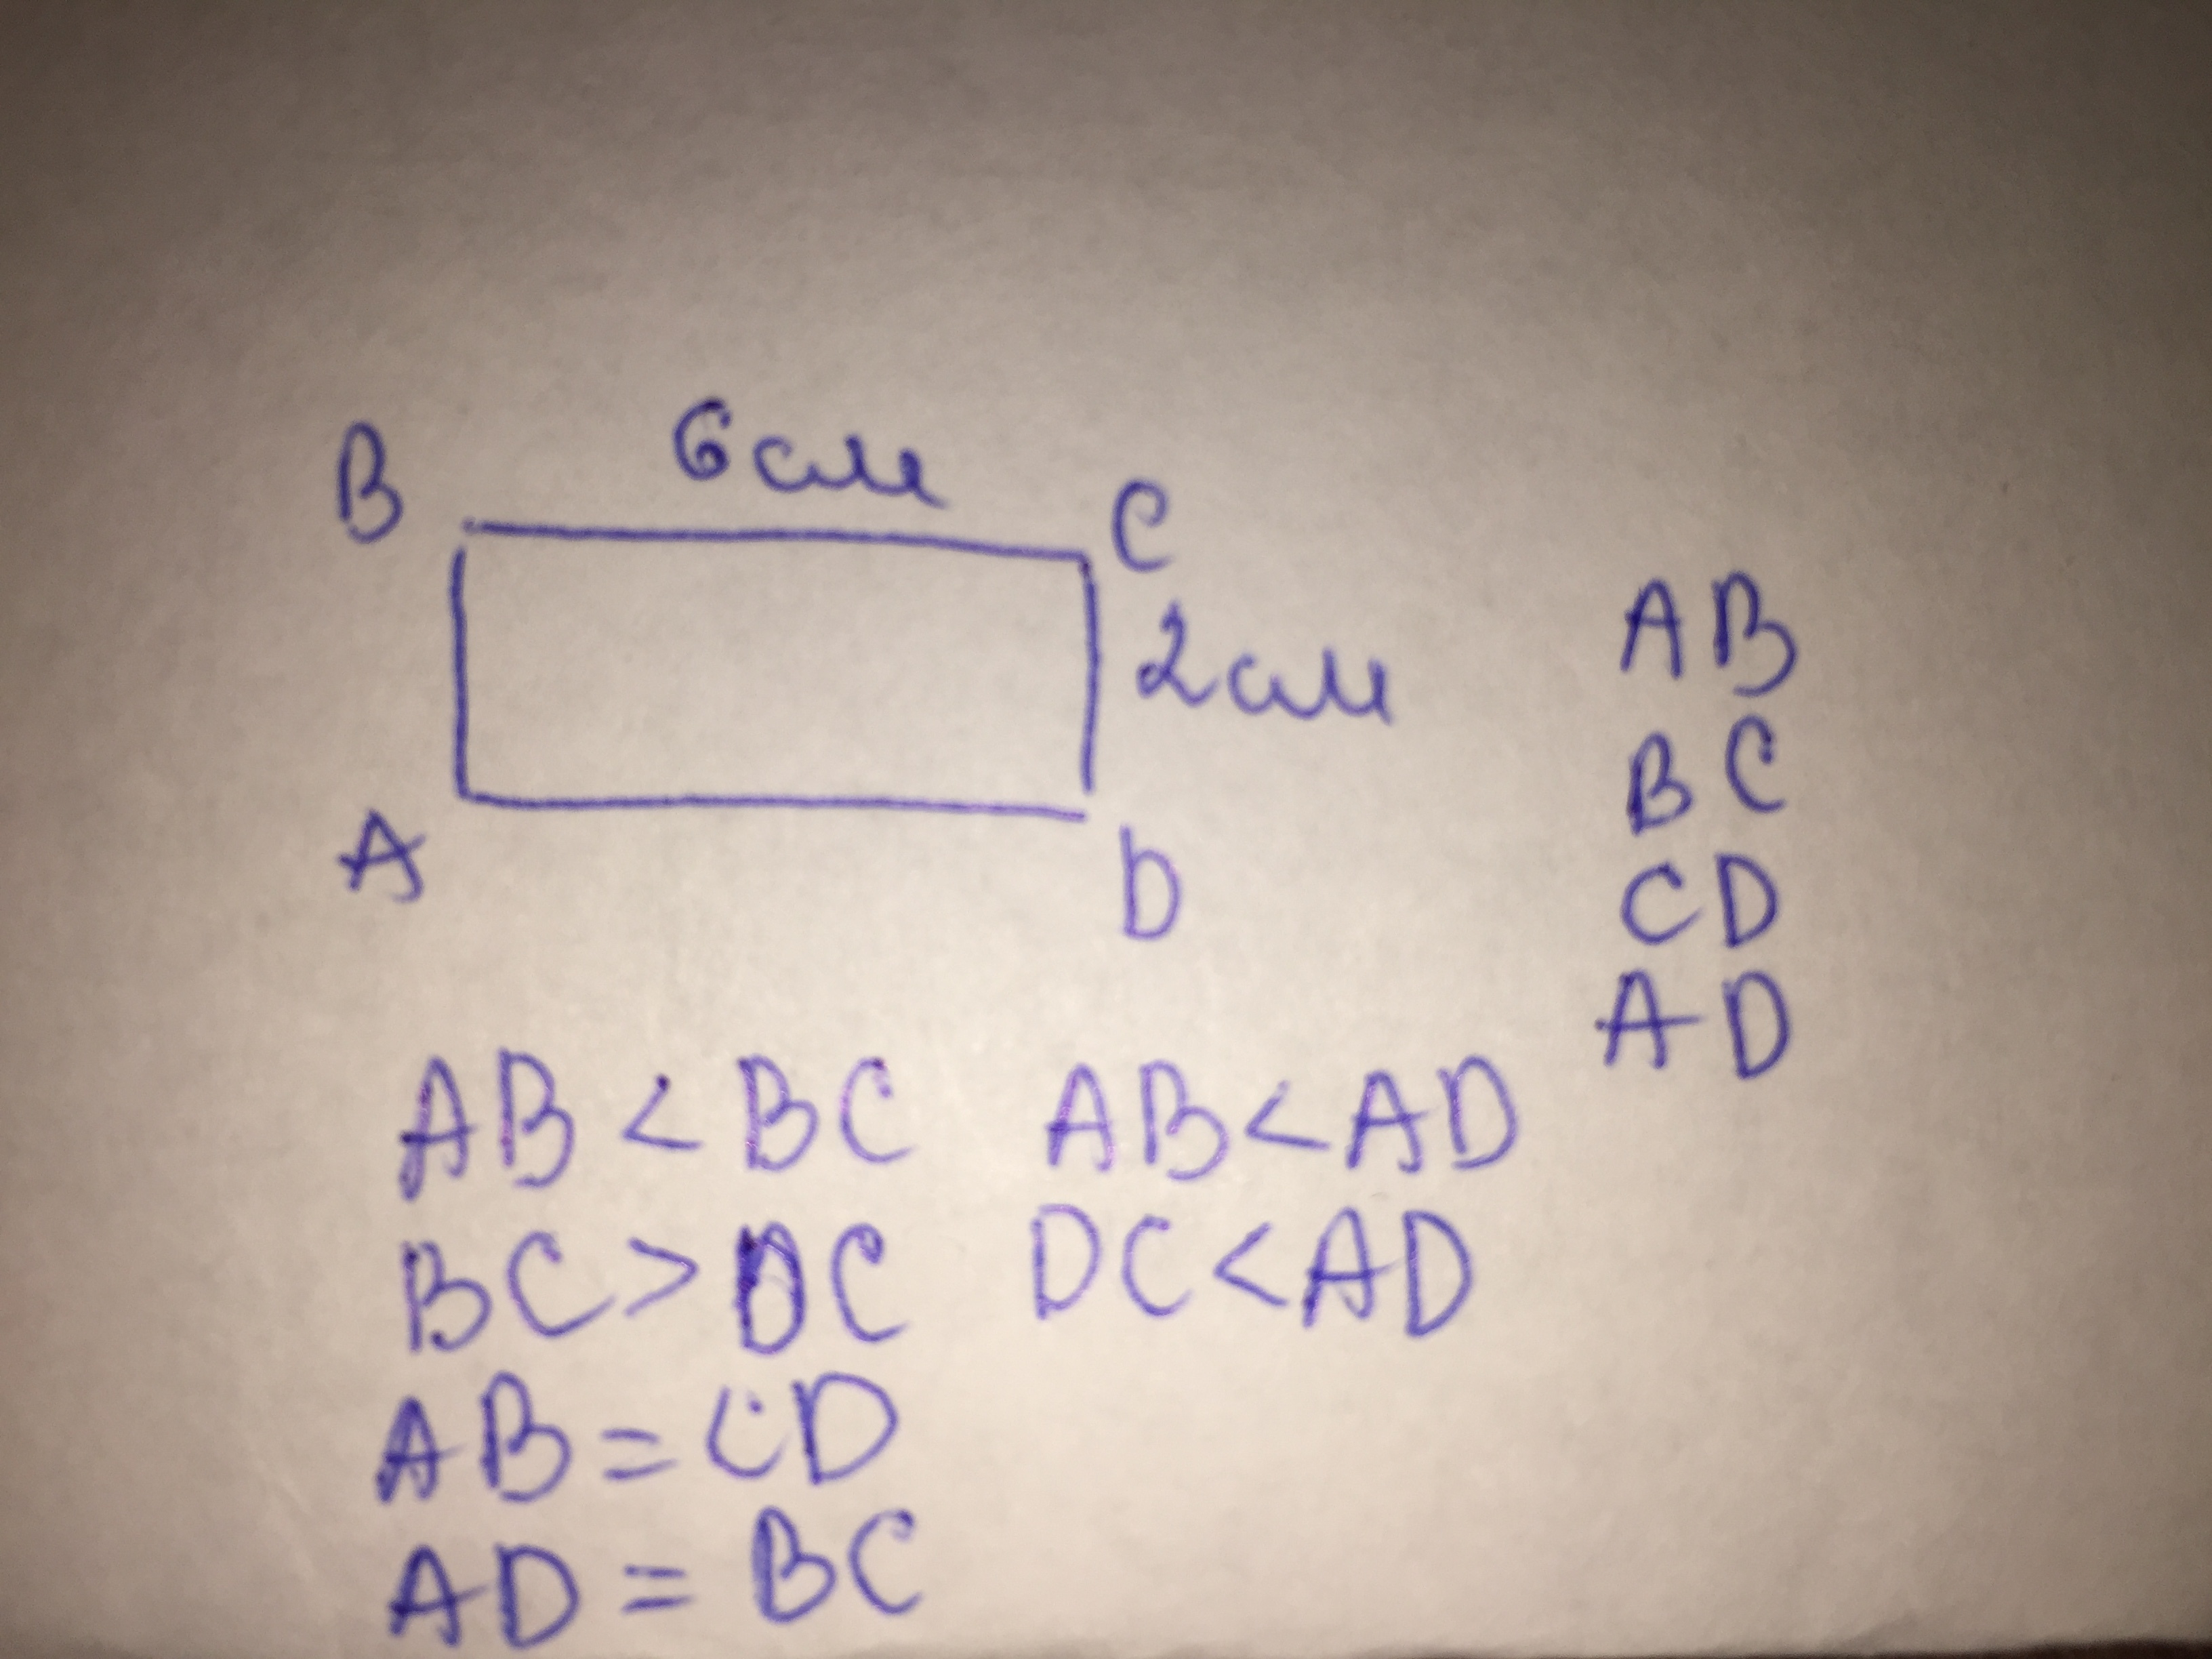 B 6 см C
2 см
A D
AB
BC
CD
AD
AB < BC AB < AD
BC > DC DC < AD
AB = CD
AD = BC